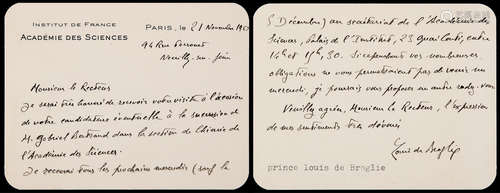 INSTITUT DE FRANCE
ACADÉMIE DES SCIENCES
PARIS, le 21 Novembre
94 Rue Perronet
Neuilly-sur-Seine
Monsieur le Recteur
Je serai très heureux de recevoir votre visite à l'occasion
de votre candidature éventuelle à la succession de
M. Gabriel Bertrand dans la section de Chimie de
l'Académie des Sciences.
Je recevrai tous les prochains mercredis (sauf le
5 Décembre) au secrétariat de l'Académie des
Sciences, Palais de l'Institut, 23 quai Conti, entre
14h et 15h,30. Si cependant vos nombreuses
obligations ne vous permettraient pas de venir un
mercredi, je pourrais vous proposer un autre rendez-vous.
Veuillez agréer, Monsieur le Recteur, l'expression
de mes sentiments très dévoués
Louis de Broglie
prince louis de Broglie